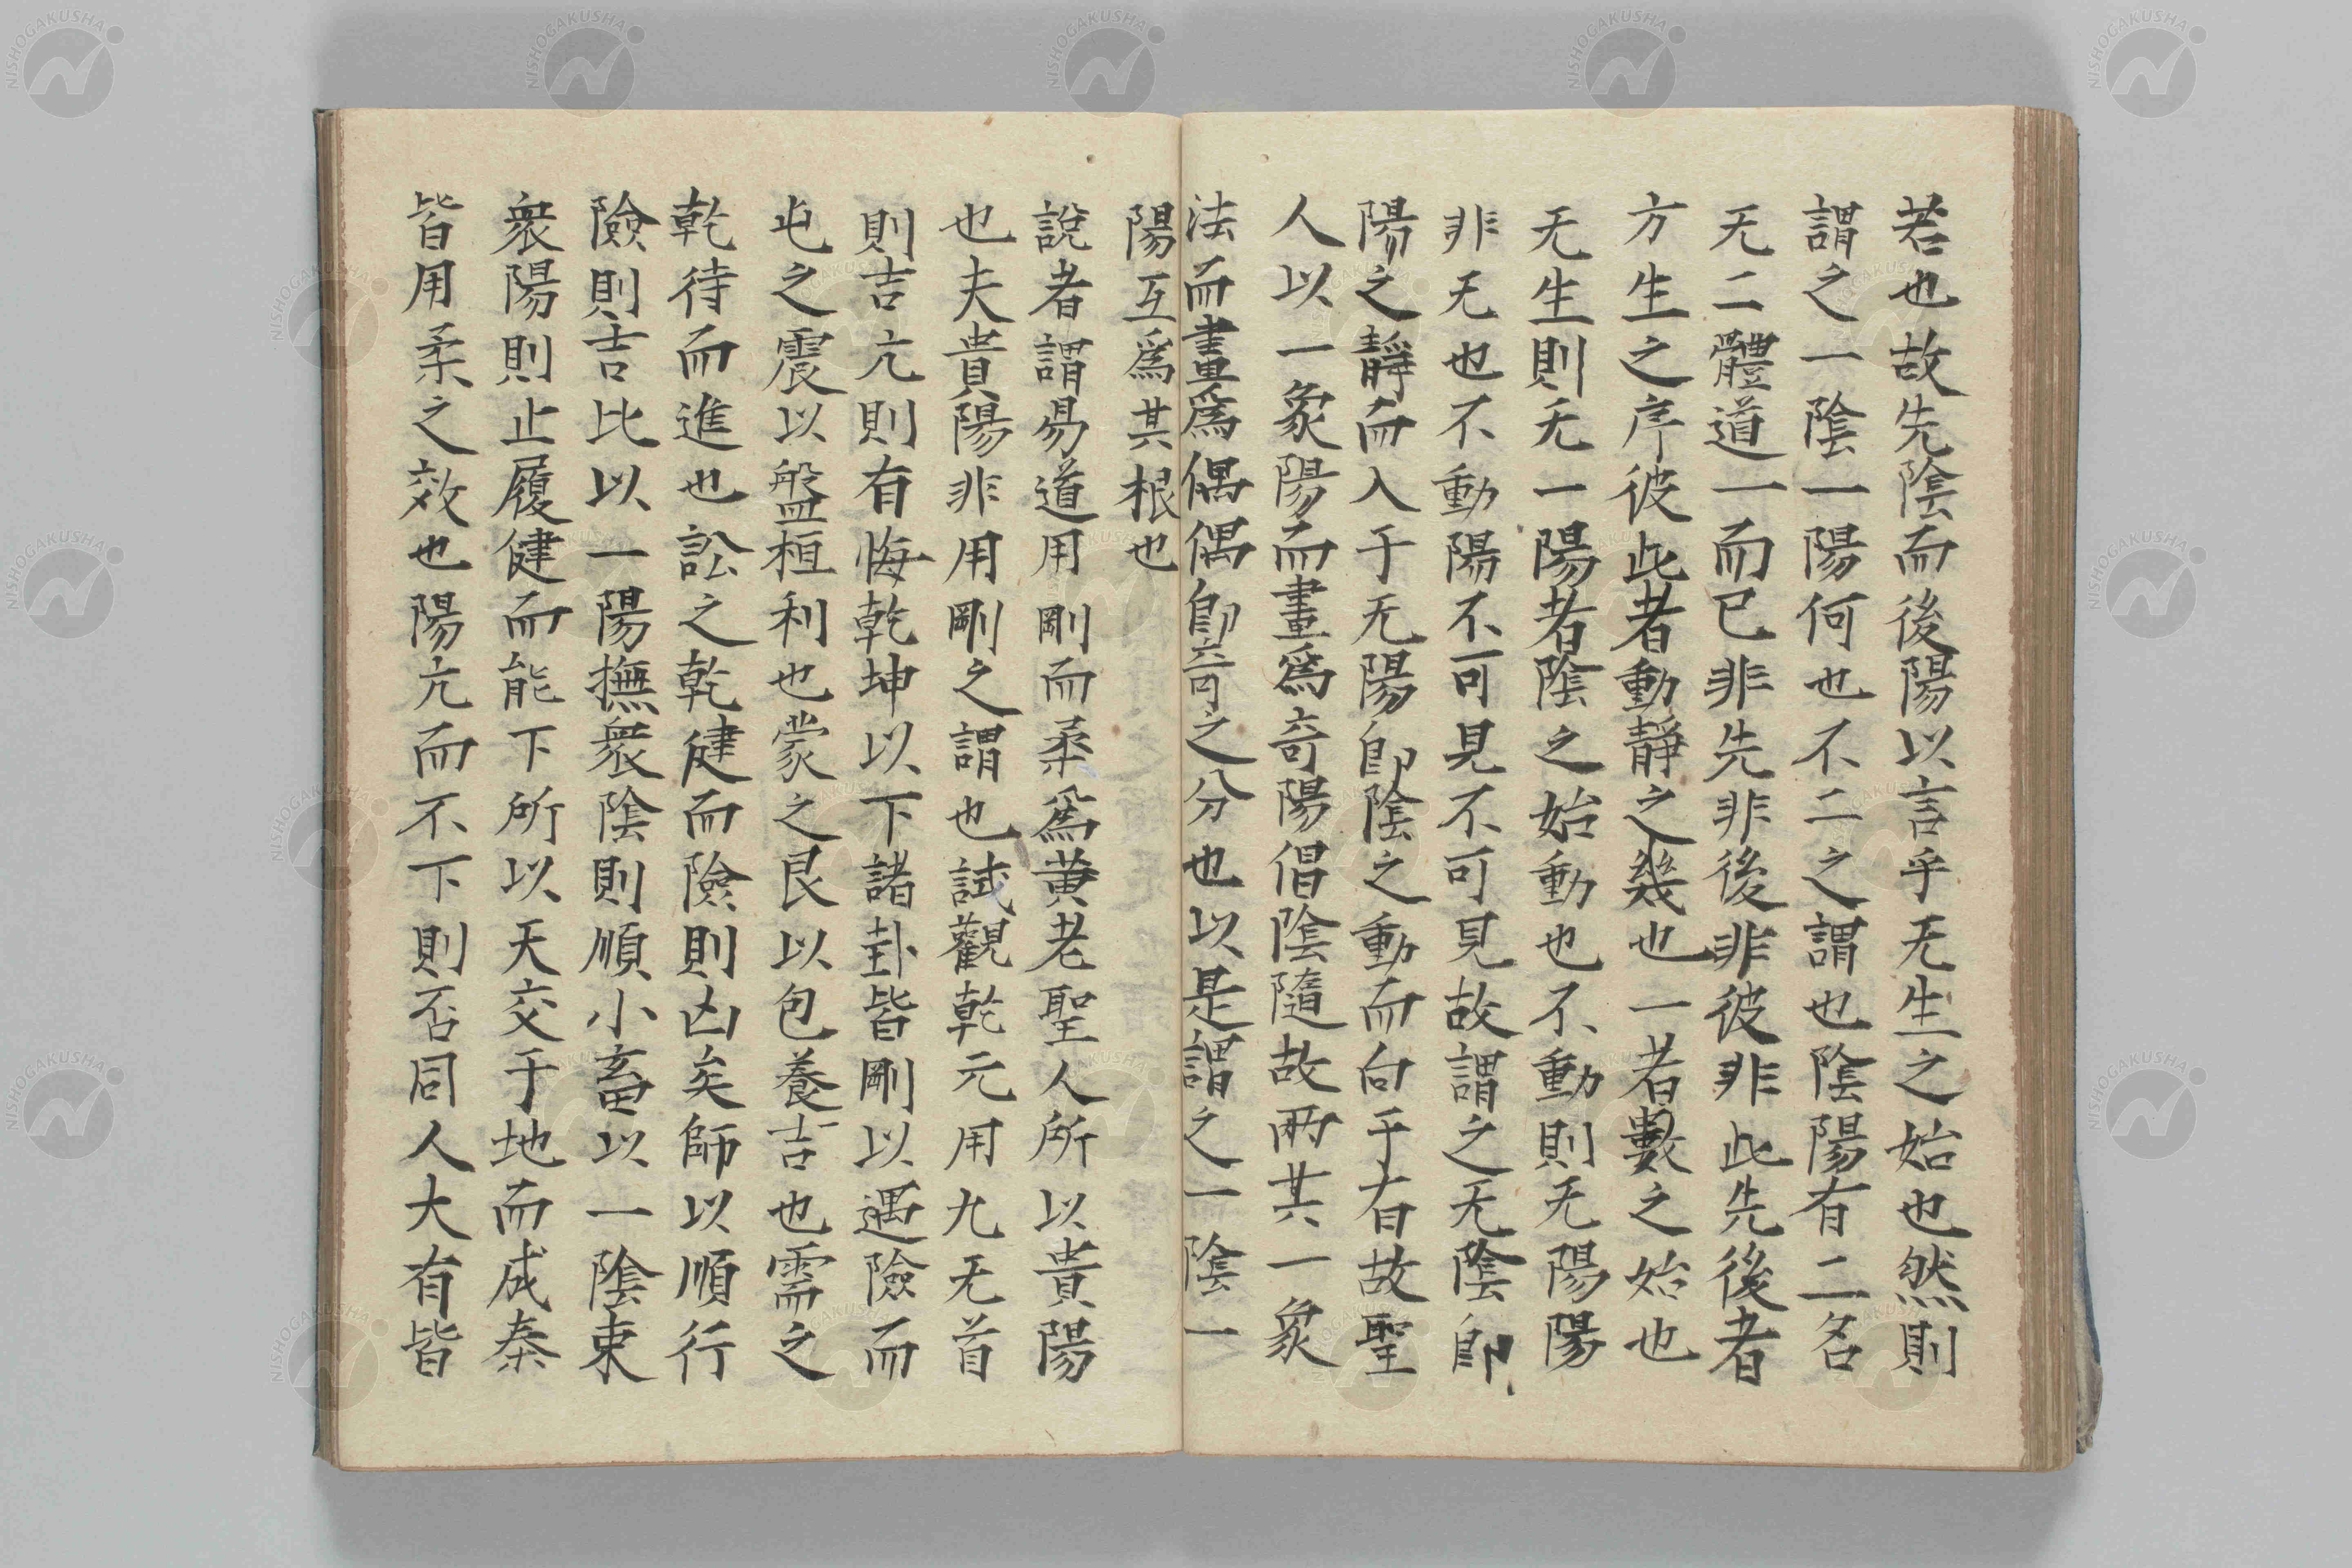 若也故先陰而後陽以言乎无生之始也然則
謂之一陰一陽何也不二之謂也陰陽有二名
无二體道一而已非先非後非彼非此先後者
方生之序彼此者動靜之幾也一者數之始也
无生則无一陽者陰之始動也不動則无陽陽
非无也不動陽不可見不可見故謂之无陰即
陽之靜而入于无陽即陰之動而向于有故聖
人以一象陽而畫爲奇陽倡陰隨故兩其一象
法而畫爲偶偶即奇之分也以是謂之一陰一
陽互爲其根也
說者謂易道用剛而柔爲黃老聖人所以貴陽
也夫貴陽非用剛之謂也試觀乾元用九无首
則吉亢則有悔乾坤以下諸卦皆剛以遇險而
屯之震以盤桓利也蒙之艮以包養吉也需之
乾待而進也訟之乾健而險則凶矣師以順行
險則吉比以一陽撫衆陰則順小畜以一陰束
衆陽則止履健而能下所以天交于地而成泰
皆用柔之效也陽亢而不下則否同人大有皆
NISHOGAKUSHA
NISHOGAKUSHA
NISHOGAKUSHA
NISHOGAKUSHA
NISHOGAKUSHA